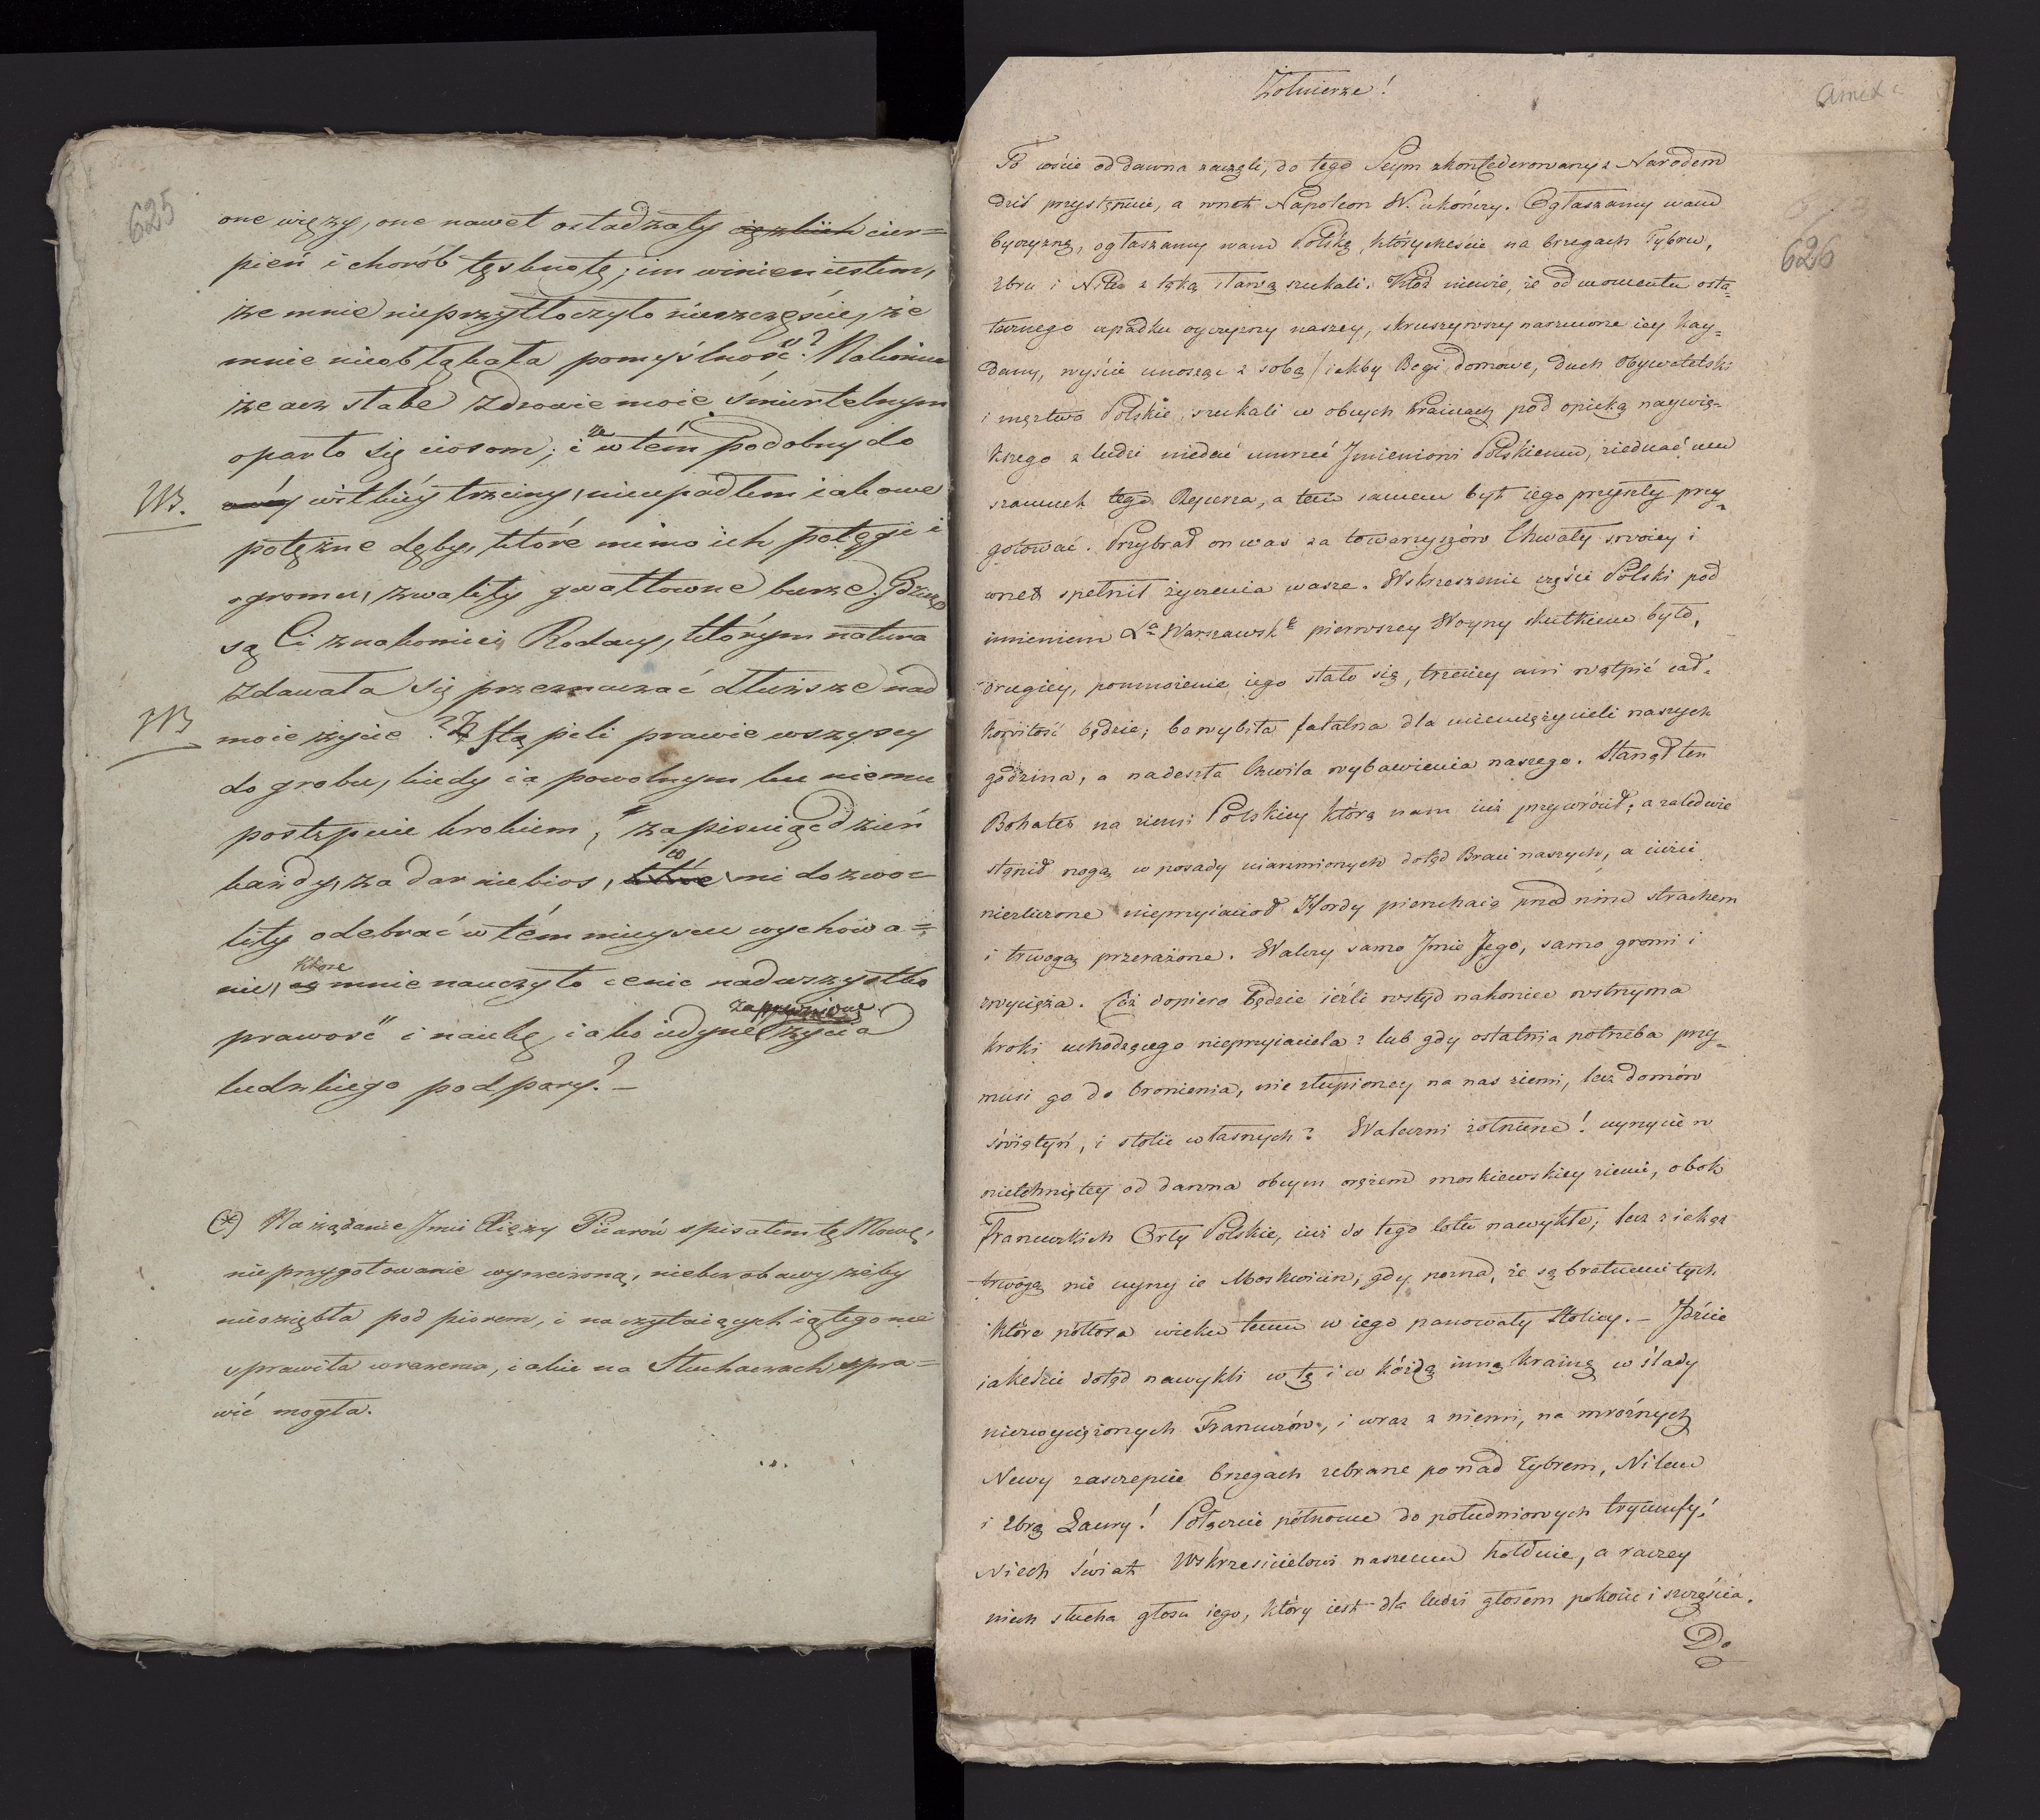 625
one więzy, one nawet osładzały ciężkich cier=
pień i chorób tęsknotę; im winien iestem,
że mnie nieprzytłoczyło nieszczęście, że
mnie nieobłąkała pomyślność? Nakoniec
że acz słabe zdrowie moie śmiertelnym
oparło się ciosom; i że w tém podobny do
NB. owéy witkiéy trzciny, nieupadłem iak owe
potężne dęby, które mimo ich potęgi i
ogromu, zwaliły gwałtowne burze. Gdzież
są Ci znakomici Rodacy, którym natura
zdawała się przeznaczać dłuższe nad
NB moie życie? Zstąpili prawie wszyscy
do grobu, kiedy ia powolnym ku niemu
postępuie krokiem, zapisuiąc dzień
każdy, za dar niebios, które co mi dozwo=
liły odebrać w tém mieyscu wychowa=
nie, które mnie nauczyło cenić nadwszystko
prawość i naukę, iako iedyne życia
ludzkiego podpory? _
(*) Na żądanie Jmci Xięży Piiarów spisałem tę Mowę,
nie przygotowanie wyrzeczoną, niebez obawy żeby
nieoziębła pod piórem, i na czytaiących ią tego nie
sprawiła wrażenia, iakie na Słuchaczach spra=
wić mogła.
Żołnierze!
626
To coście od dawna zaczęli, do tego Seym skonfederowany z Narodem
dziś przystępuie, a wnet Napoleon W. ukończy. Ogłaszamy wam
Oyczyznę, ogłaszamy wam Polskę, któréyście na brzegach Tybru,
Ebru i Nilu z taką sławą szukali. Któż niewie, że od momentu osta=
tecznego upadku oyczyzny naszey, skruszywszy narzucone iey kay=
dany, wyście unosząc z sobą iakby Bogi domowe, duch Obywatelski
i męztwo Polskie, szukali w obcych krainach pod opieką naywię=
kszego z ludzi niedać umrzeć Jmieniowi Polskiemu, ziednać mu
szacunek tego Rycerza, a tem samem byt iego przyszły przy=
gotować. Przybrał on was za towarzyszów Chwały swoiey i
wnet spełnił życzenia wasze. Wskrzeszenie części Polski pod
imieniem Xa Warszawsko pierwszey Woyny skutkiem było,
drugiey, pomnożenie iego stało się, trzeciey ani wątpić cał=
kowitość będzie; bo wybiła fatalna dla ciemiężycieli naszych
godzina, a nadeszła Chwila wybawienia naszego. Stanął ten
Bohater na ziemi Polskiey którą nam iuż przywrócił; a zaledwie
stąpił nogą w posady uiarzmionych dotąd Braci naszych, a iużci
niezliczone nieprzyiaciół Hordy pierzchaią przed nim strachem
i trwogą przerażone. Walczy samo Jmie Jego, samo gromi i
zwycięża. Cóż dopiero będzie ieżli wstyd nakoniec wstrzyma
kroki uchodzącego nieprzyiaciela? lub gdy ostatnia potrzeba przy=
musi go do bronienia, nie złupioney na nas ziemi, lecz domów
świątyń, i stolic własnych? Waleczni żołnierze! uyrzycie w
nietkniętey od dawna obcym orężem moskiewskiey ziemi, obok
Francuzkich Orły Polskie, iuż do tego lotu nawykłe; lecz z iakąż
trwogą nie uyrzy ie Moskwicin, gdy pozna, że są bratniemi tych
które półtora wieku temu w iego panowały Stolicy. _ Jdźcie
iakeście dotąd nawykli w tę i w każdą inną krainę w ślady
niezwyciężonych Francuzów, i wraz z niemi, na mroźnych
Newy zaszczepcie brzegach zebrane ponad Tybrem, Nilem
i Ebrą Laury! Połączcie północne do południowych tryumfy!
Niech świat Wskrzesicielowi naszemu hołduie, a raczey
niech słucha głosu iego, który iest dla ludzi głosem pokoiu i szczęścia.
Do